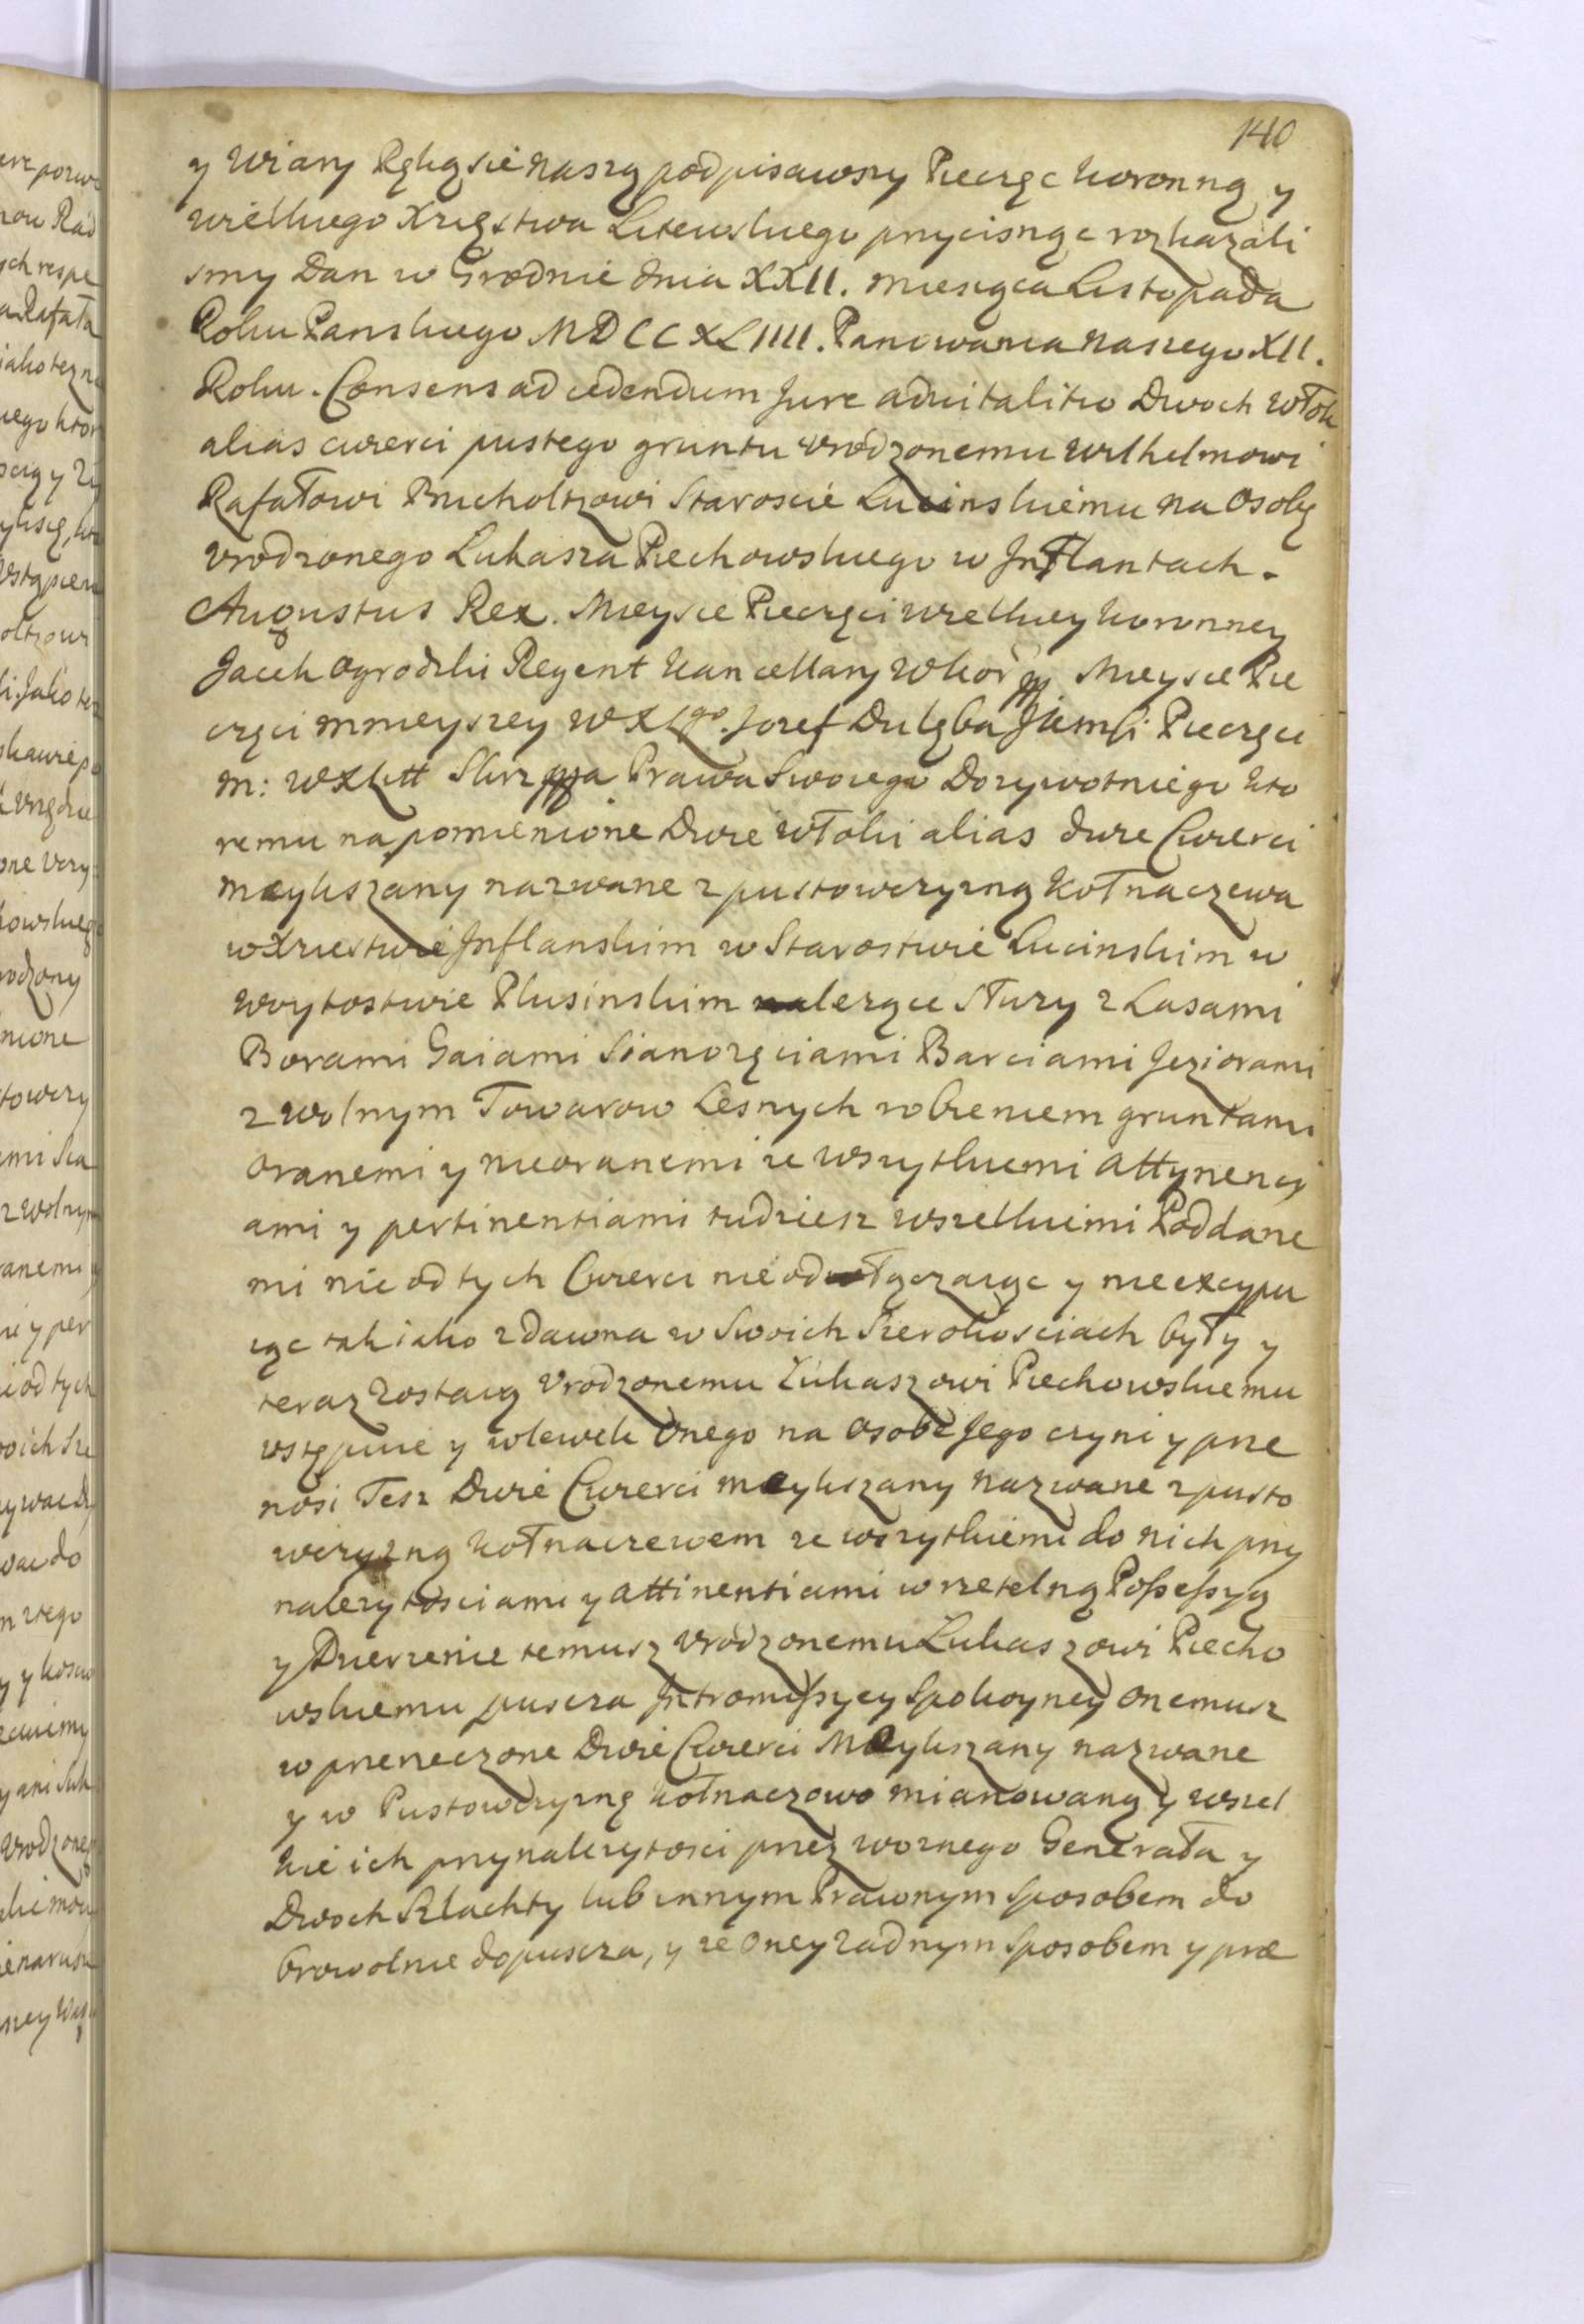 140
y Wiary Ręką się naszą podpisawszy Pieczęc koronną y
wielkiego Xięstwa Litewskiego przycisnąc rozkazali
smy Dan w Grodnie dnia XXII. miesiąca Listopada
Roku Panskiego MDCCXLIIII. Panowania naszego XII.
Roku. Consens ad cedendum Jure aduitalitio Dwoch włok
alias czwerci pustego gruntu vrodzonemu Wilhelmowi
Rafałowi Bucholtzowi Staroscie Lucinskiemu na Osobę
vrodzonego Lukasza Piechowskiego w Inflantach.
Augustus Rex. Mieysce Pieczęci wielkiey koronney
Jacek Ogrodzki Regent kancellary Wkor Mieysce Pie
częci mnieyszey WXLgo. Jozef Dulęba Pieczęci
m: WXLitt Prawa Swoiego Dozywotniego kto
remu na pomienione Dwie włoki alias dwie Czwerci
meykszany nazwane z pustowczyzną kołnaczewa
w Xiestwie Inflanskim w Starostwie Lucinskim w
woytostwie Plusinskim nalezące z Lasami
Borami Gaiami Sianozęciami Barciami Jeziorami
z wolnym Towarow Lesnych robieniem gruntami
Oranemi y nieoranemi ze wszytkiemi attynency
ami y pertinentiami tudziesz wszelkiemi Poddane
mi nic od tych Czwerci nie odłączaiąc y nieexcypu
iąc tak iako zdawna w Swoich Szerokosciach były y
teraz Zostaią vrodzonemu Łukaszowi Piechowskiemu
vstępuie y wlewek Onego na Osobę Jego czyni y prze
nosi Tesz Dwie Czwerci meykszany nazwane z pusto
wczyzną kołnaczewem ze wszytkiemi do nich przy
nalezytosciami y attinentiami w rzetelną Possessyą
y Dzierzenie temusz vrodzonemu Lukaszowi Piecho
wskiemu puscza Intromissyey Spokoyney Onemusz
w przerzeczone Dwie Czwerci Meykszany nazwane
y w Pustowczyznę kołnaczowo mianowaną y wszel
kie ich przynalezytosci przez woznego Generała y
Dwoch Szlachty lub innym Prawnym Sposobem do
browolnie dopuscza, y ze Oney zadnym Sposobem y prze